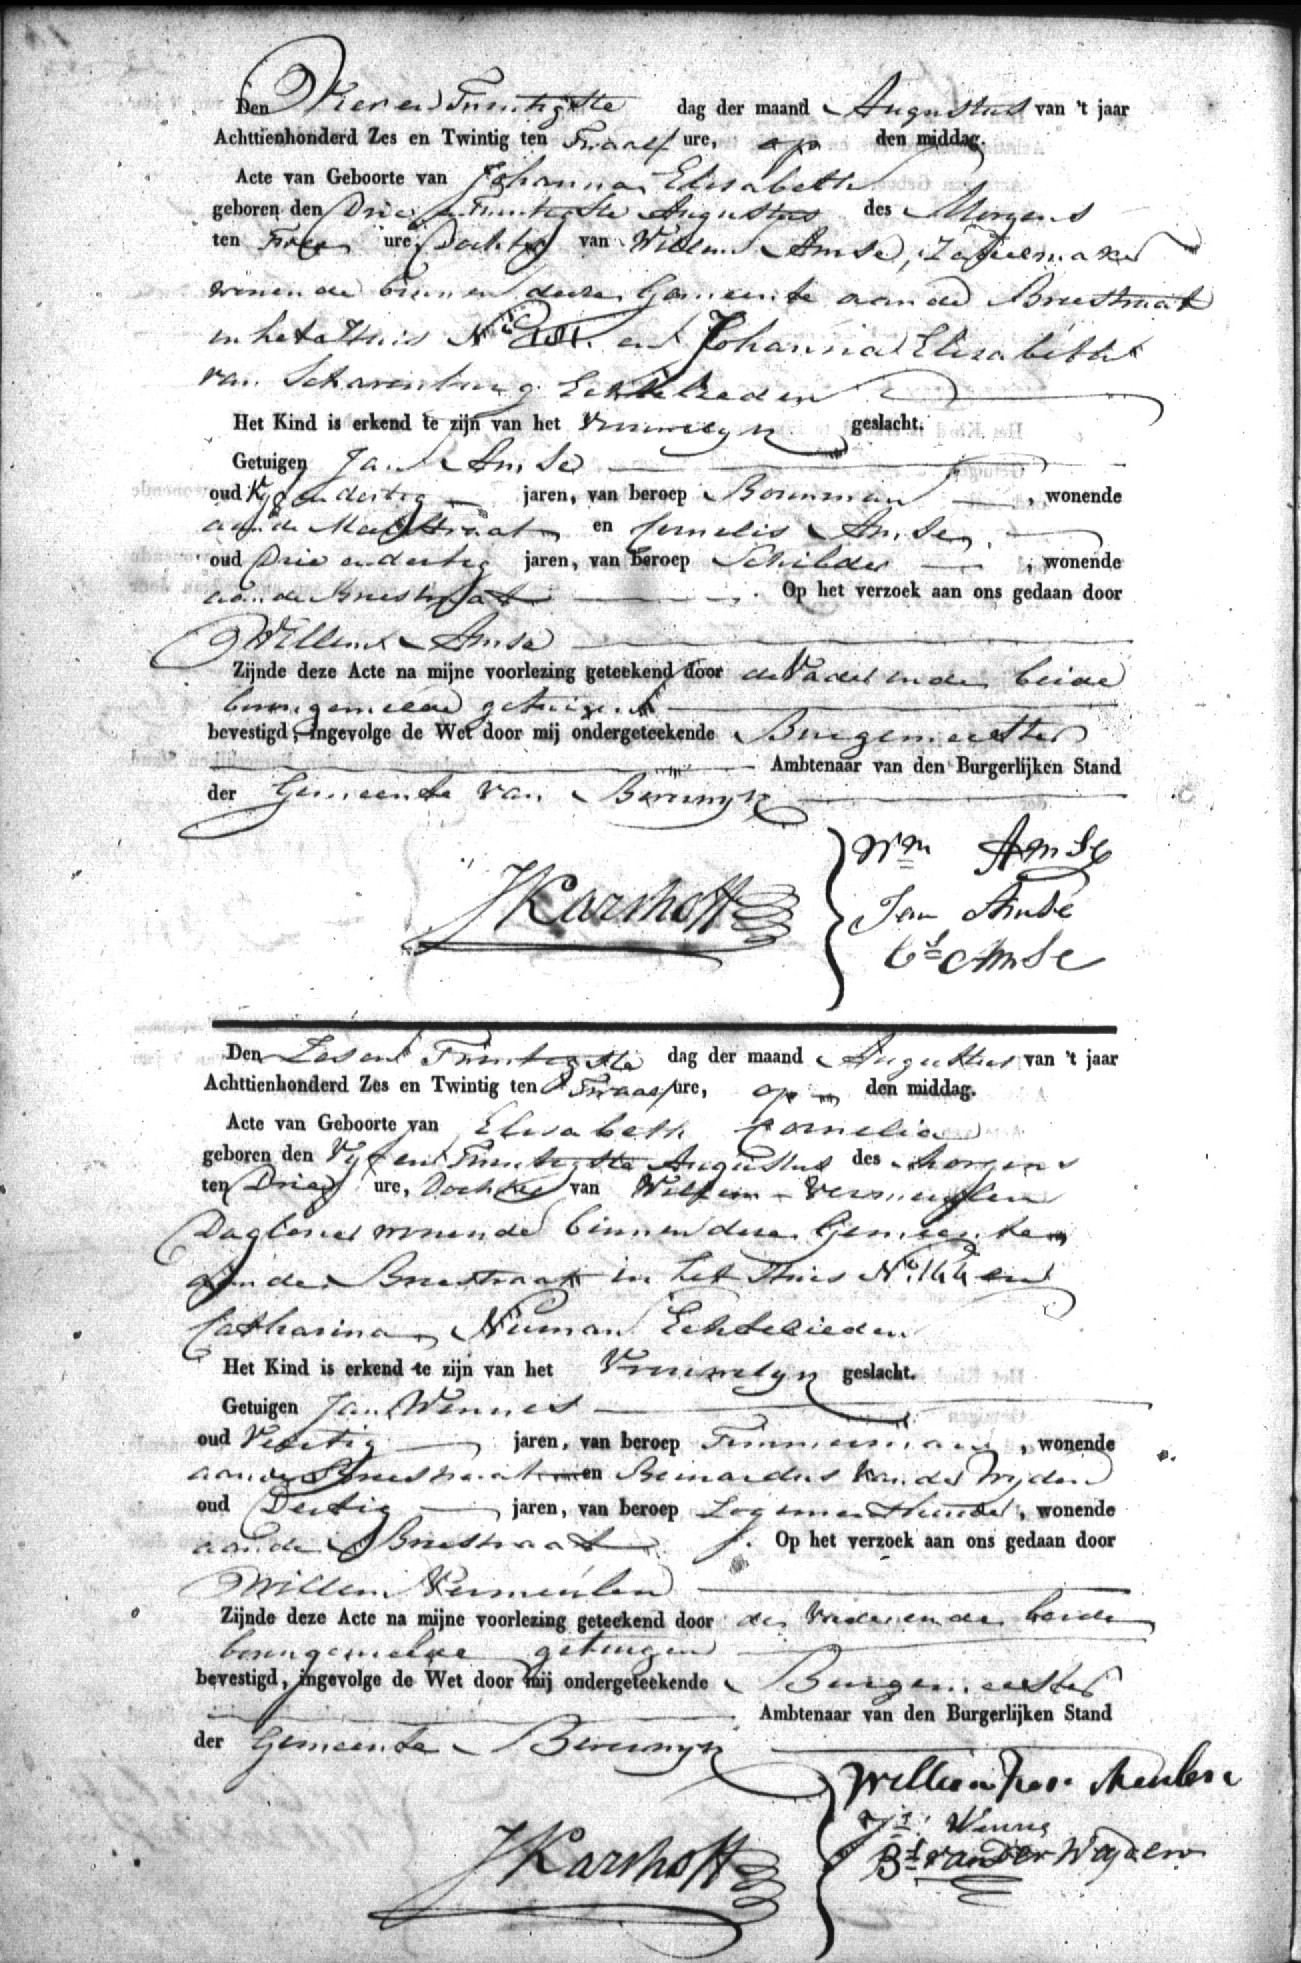 Den Vier en Twintigste dag der maand Augustus van 't jaar
Achttienhonderd Zes en Twintig ten Twaalf ure, op den middag.
Acte van Geboorte van Johanna Elisabeth
geboren den Drie en Twintigste Augustus des Morgens
ten Twee ure, Dochter van Willem Amse,
wonende binnen deeze Gemeente aan de Breestraat
in het Huis No en Johanna Elizabeth
van Scharenburg Echtelieden
Het Kind is erkend te zijn van het Vrouwelyk geslacht.
Getuigen Jan Amse
oud Vyf en dertig jaren, van beroep Bouwman, wonende
aan de en Cornelis Amse
oud Drie en dertig jaren, van beroep Schilder, wonende
aan de Breestraat. Op het verzoek aan ons gedaan door
Willem Amse
Zijnde deze Acte na mijne voorlezing geteekend door de Vader en de beide
bovengemelde getuigen
bevestigd, ingevolge de Wet door mij ondergeteekende Burgemeester
Ambtenaar van den Burgerlijken Stand
der Gemeente van Beverwyk
JKarshoff
Wm Amse
Jan Amse
Cs Amse
Den Zes en Twintigste dag der maand Augustus van 't jaar
Achttienhonderd Zes en Twintig ten Twaalf ure, op den middag.
Acte van Geboorte van Elisabeth Cornelia
geboren den Vyf en Twintigste Augustus des morgens
ten Drie ure, Dochter van Willem Vermeulen
Dagloner wonende binnen deze Gemeente
aan de Breestraat in het Huis No. 144 en
Catharina Numan Echtelieden
Het Kind is erkend te zijn van het Vrouwelyk geslacht.
Getuigen Jan Wennes
oud Veertig jaren, van beroep Timmerman, wonende
aan de Breestraat en Bernardus van der Wyden
oud Dertig jaren, van beroep Logementhouder, wonende
aan de Breestraat. Op het verzoek aan ons gedaan door
Willem Vermeulen
Zijnde deze Acte na mijne voorlezing geteekend door de Vader en de beide
bovengemelde getuigen
bevestigd, ingevolge de Wet door mij ondergeteekende Burgemeester
Ambtenaar van den Burgerlijken Stand
der Gemeente Beverwyk
JKarshoff
Willem ver Meulen
Wenne
Bs van der Weyden